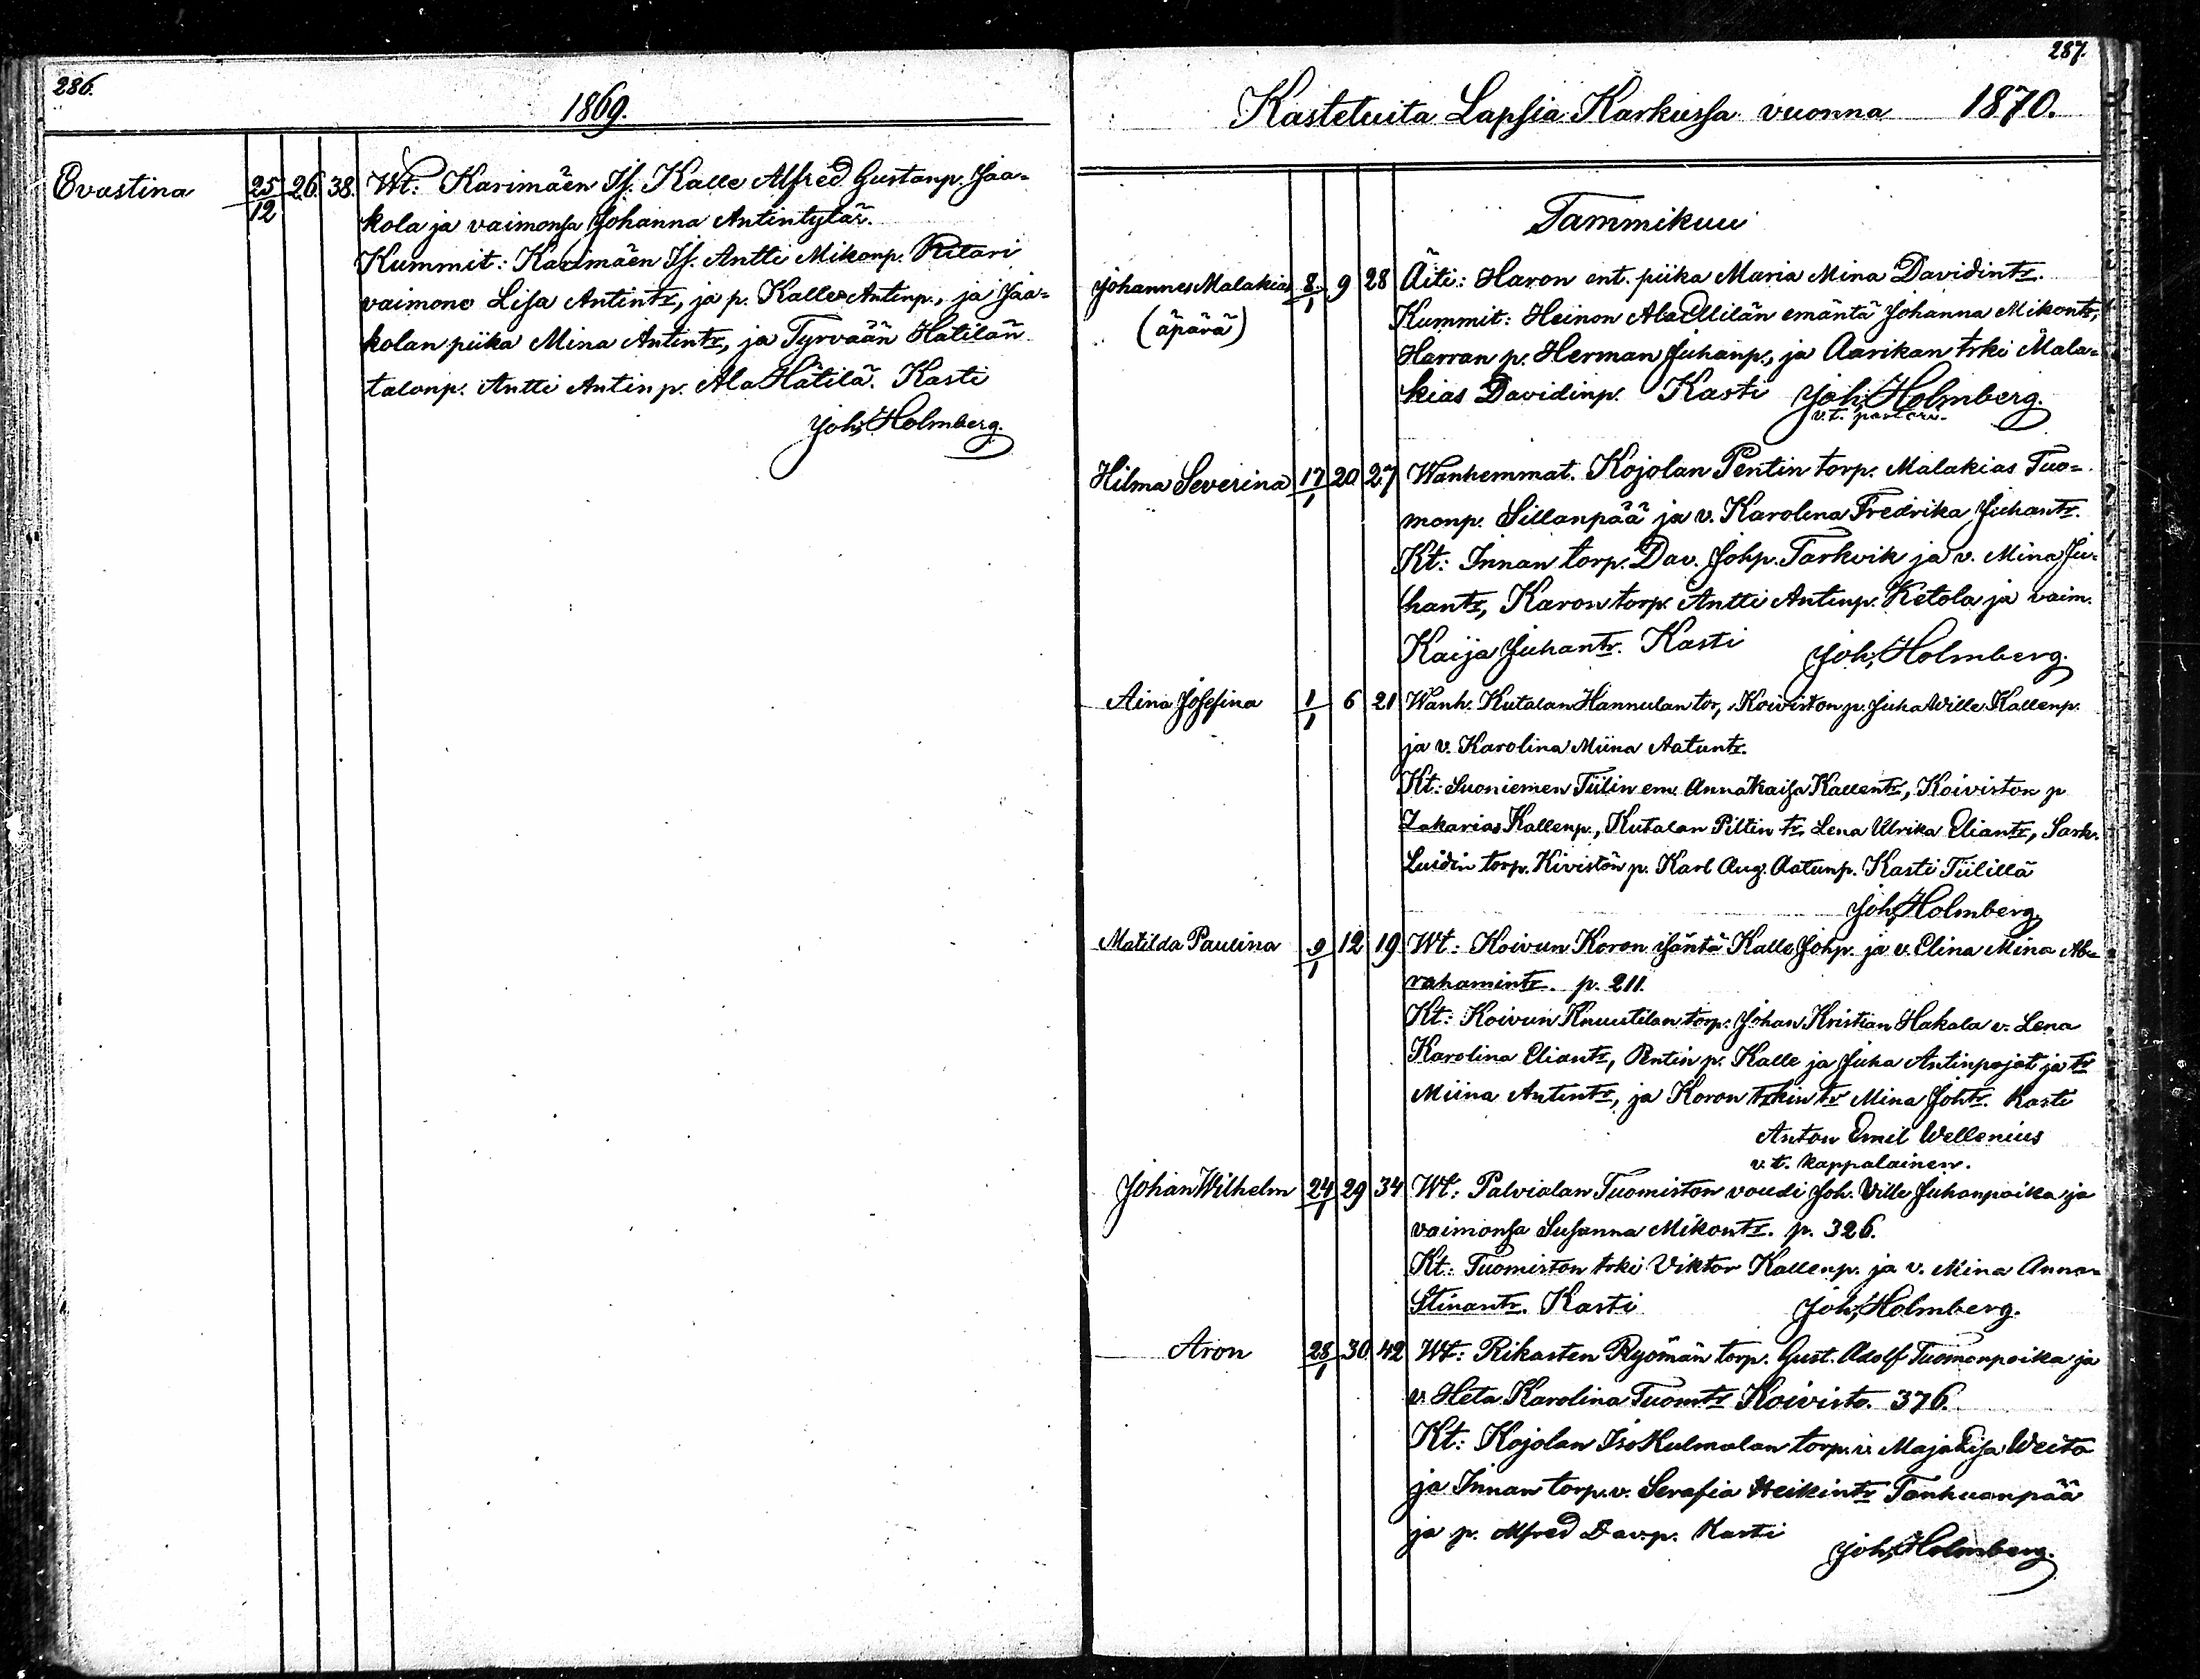 286.
1869.
Evastina 25/12 26. 38. Wt: Karimäen If. Kalle Alfred Gustanp. Jaa=
kola ja vaimonsa Johanna Antintytär.
Kummit: Karimäen If. Antti Mikonp. Ritari
vaimone Lisa Antintr, ja p. Kalle Antinp., ja Jaa=
kolan piika Mina Antintr, ja Tyrvään Hätilän
talonp. Antti Antinp. Ala Hätilä. Kasti
Joh. Holmberg.
287.
Kastetuita Lapsia Karkussa vuonna 1870.
Tammikuu
Johannes Malakias 8/1 9 28 Äiti: Haron ent. piika Maria Mina Davidintr.
(äpärä) Kummit: Heinon Ala Ellilän emäntä Johanna Mikontr,
Harran p. Herman Juhanp., ja Aarikan trki Mala=
kias Davidinp. Kasti Joh. Holmberg.
v.t. pastori.
Hilma Severina 17/1 20 27 Wanhemmat. Kojolan Pentin torp. Malakias Tuo=
monp. Sillanpää ja v. Karolina Fredrika Juhantr.
Kt: Innan torp. Dav. Johp. Tarkvik ja v. Mina Ju=
hantr, Karon torp. Antti Antinp. Ketola ja vaim.
Kaija Juhantr. Kasti Joh. Holmberg.
Aina Josefina 1/1 6 21 Wanh. Kutalan Hannulan tor, Koiviston p. Juha Wille Kallenp.
ja v. Karolina Miina Aatuntr.
Kt: Suoniemen Tiilin em. Anna Kaisa Kallentr, Koiviston p
Zakarias Kallenp., Kutalan Piltin tr, Lena Ulrika Eliantr, Sark.
Luidin torp. Kivistön p. Karl Aug. Aatunp. Kasti Tiilillä
Joh. Holmberg.
Matilda Paulina 9/1 12 19 Wt: Koivun Koron isäntä Kalle Johp. ja v. Elina Mina Ab=
rahamintr. p. 211.
Kt: Koivun Knuutilan torp. Johan Kristian Hakala v. Lena
Karolina Eliantr, Pentin p. Kalle ja Juha Antinpojat ja tr
Miina Antintr, ja Koron trkin tr Mina Johtr. Kasti
Anton Emil Wellenius
v.t. kappalainen.
Johan Wilhelm 24/1 29 34 Wt: Palvialan Tuomiston voudi Joh. Ville Juhanpoika ja
vaimonsa Susanna Mikontr. p. 326.
Kt: Tuomiston trki Viktor Kallenp. ja v. Mina Anna=
Stinantr. Kasti Joh. Holmberg.
Aron 28/1 30 42 Wt: Rikasten Ryömän torp. Gust. Adolf Tuomonpoika ja
v. Heta Karolina Tuomtr Koivisto. 376.
Kt: Kojolan Iso Kulmalan torp. v. Maja Lisa Weito
ja Innan torp. v. Serafia Heikintr Tanhuanpää
ja p. Alfred Dav.p. Kasti Joh. Holmberg.